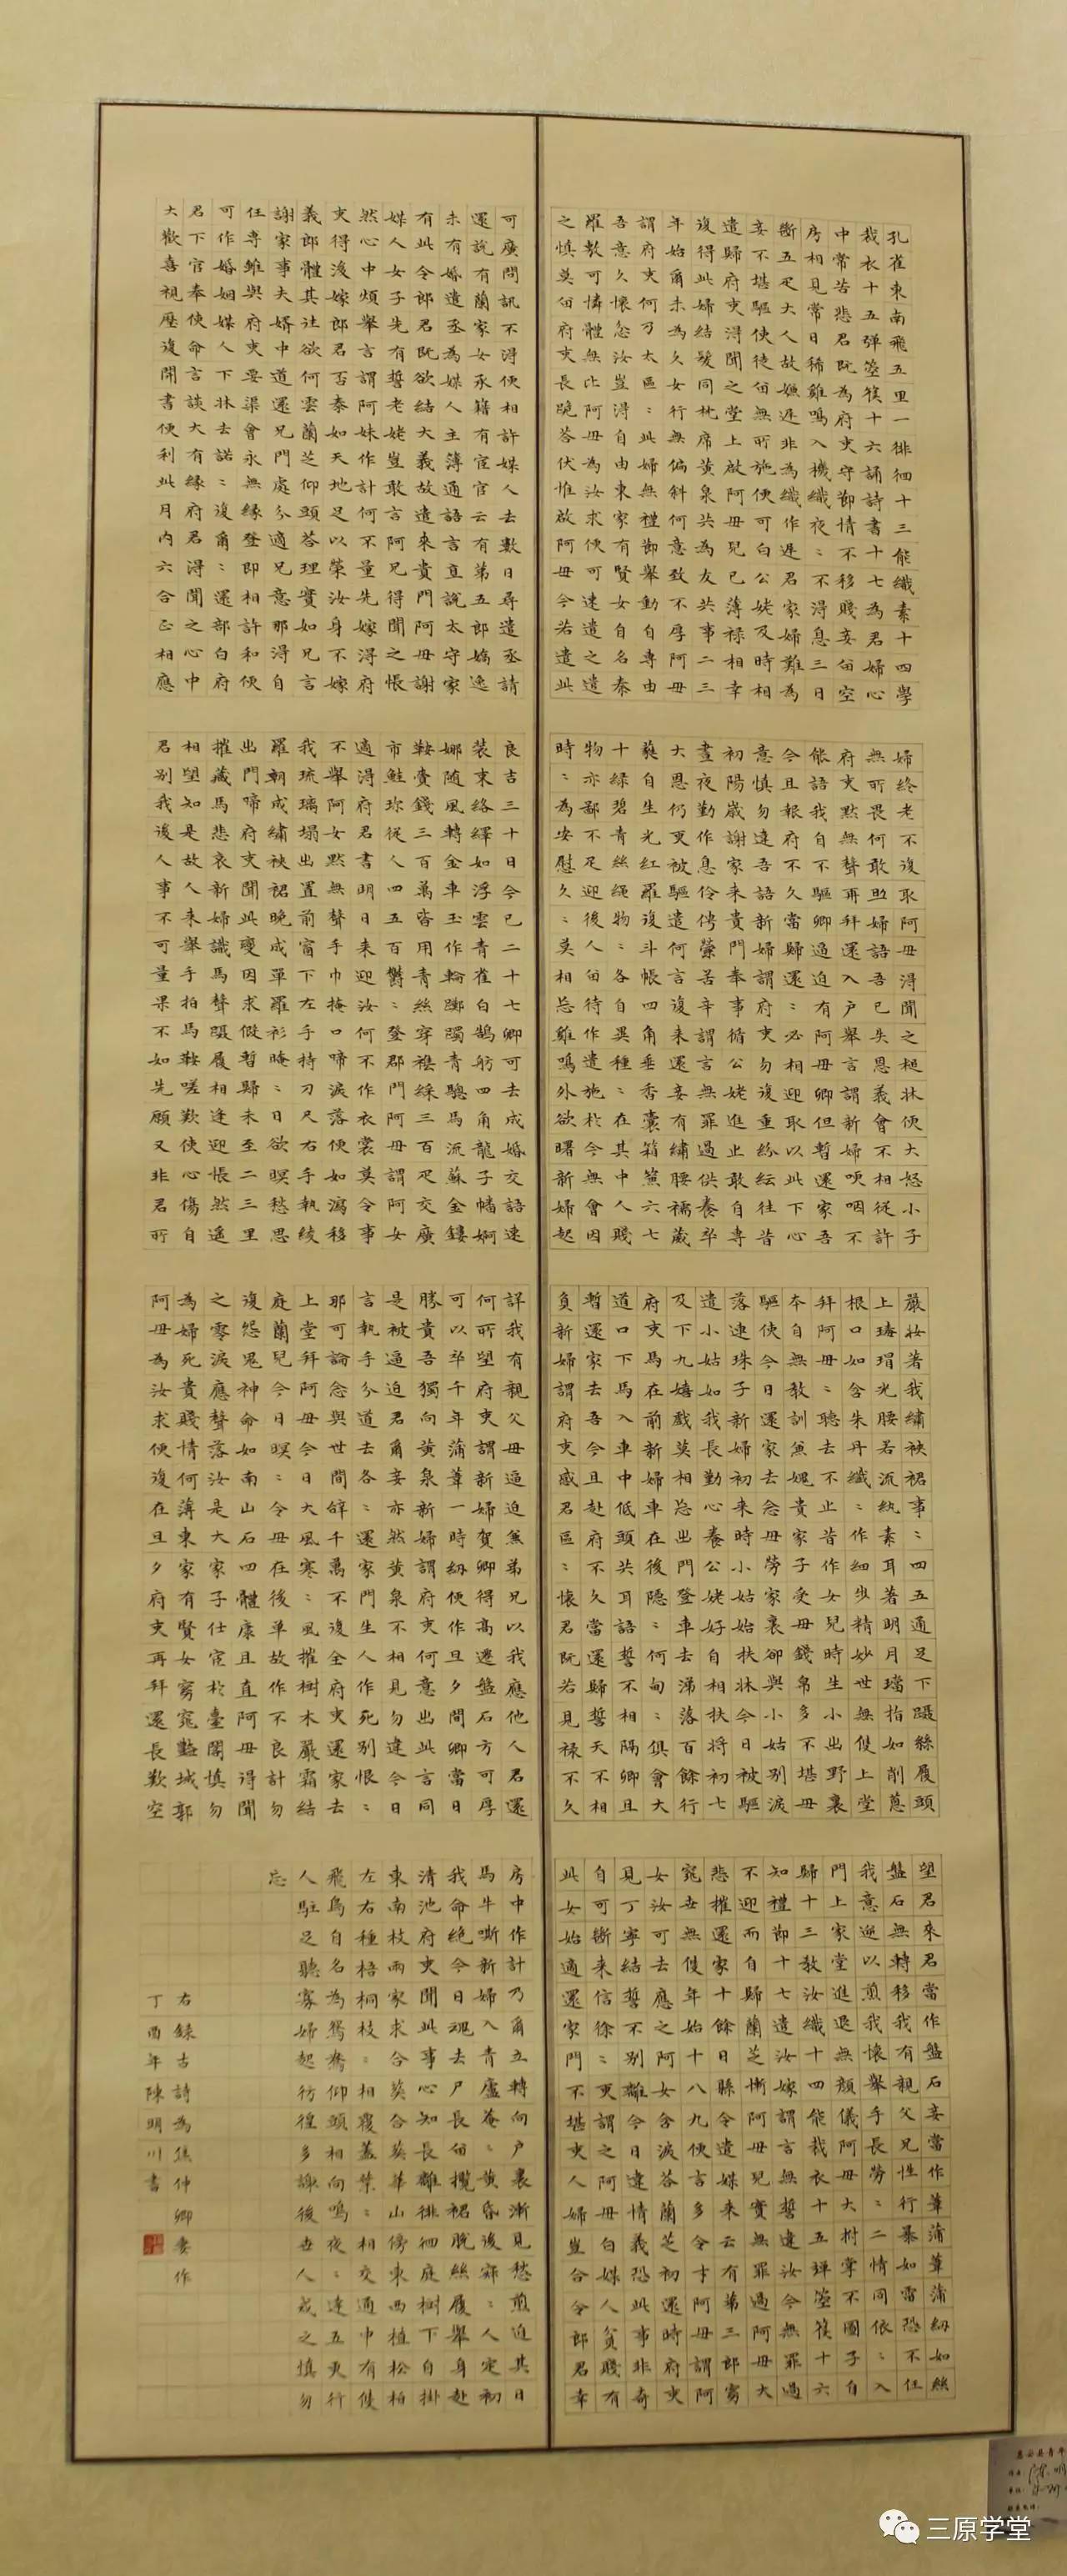 孔雀東南飛五里一徘徊十三能織素十四學
裁衣十五彈箜篌十六誦詩書十七為君婦心
中常苦悲君既為府吏守節情不移賤妾留空
房相見常日稀雞鳴入機織夜〻不得息三日
斷五疋大人故嫌遲非為織作遲君家婦難為
妾不堪驅使徒留無所施便可白公姥及時相
遣歸府吏得聞之堂上啟阿母兒已薄祿相幸
復得此婦結髮同枕席黃泉共為友共事二三
年始爾未為久女行無偏斜何意致不厚阿母
謂府吏何乃太區〻此婦無禮節舉動自專由
吾意久懷忿汝豈得自由東家有賢女自名秦
羅敷可憐體無比阿母為汝求便可速遣之遣
之慎莫留府吏長跪答伏惟啟阿母今若遣此
婦終老不復取阿母得聞之槌牀便大怒小子
無所畏何敢助婦語吾已失恩義會不相從許
府吏默無聲再拜還入戶舉言謂新婦哽咽不
能語我自不驅卿逼迫有阿母卿但暫還家吾
今且報府不久當歸還〻必相迎取以此下心
意慎勿違吾語新婦謂府吏勿復重紛紜往昔
初陽歲謝家来貴門奉事循公姥進止敢自專
晝夜勤作息伶俜縈苦辛謂言無罪過供養卒
大恩仍更被驅遣何言復来還妾有繡腰襦葳
蕤自生光紅羅復斗帳四角垂香囊箱簾六七
十綠碧青絲繩物〻各自異種〻在其中人賤
物亦鄙不足迎後人留待作遣施於今無會因
時〻為安慰久〻莫相忘雞鳴外欲曙新婦起
嚴妝著我繡裌裙事〻四五通足下躡絲履頭
上瑇瑁光腰若流紈素耳著明月璫指如削蔥
根口如含朱丹纖〻作細步精妙世無雙上堂
拜阿母〻聽去不止昔作女兒時生小出野裏
本自無教訓兼愧貴家子受母錢帛多不堪母
驅使今日還家去念母勞家裏卻與小姑別淚
落連珠子新婦初来時小姑始扶牀今日被驅
遣小姑如我長勤心養公姥好自相扶將初七
及下九嬉戲莫相忘出門登車去涕落百餘行
府吏馬在前新婦車在後隱〻何甸〻俱會大
道口下馬入車中低頭共耳語誓不相隔卿且
暫還家去吾今且赴府不久當還歸誓天不相
負新婦謂府吏感君區〻懷君既若見祿不久
望君來君當作盤石妾當作葦蒲葦蒲紉如絲
盤石無轉移我有親父兄性行暴如雷恐不任
我意逆以煎我懷舉手長勞〻二情同依〻入
門上家堂進退無顏儀阿母大拊掌不圖子自
歸十三教汝織十四能裁衣十五彈箜篌十六
知禮節十七遣汝嫁謂言無誓違汝今無罪過
不迎而自歸蘭芝慚阿母兒實無罪過阿母大
悲摧還家十餘日縣令遣媒来云有第三郎窈
窕世無雙年始十八九便言多令才阿母謂阿
女汝可去應之阿女含淚答蘭芝初還時府吏
見丁寧結誓不別離今日違情義恐此事非奇
自可斷来信徐〻更謂之阿母白媒人貧賤有
此女始適還家門不堪吏人婦豈合令郎君幸
可廣問訊不得便相許媒人去數日尋遣丞請
還說有蘭家女承籍有宦官云有第五郎嬌逸
未有婚遣丞為媒人主簿通語言直說太守家
有此令郎君既欲結大義故遣來貴門阿母謝
媒人女子先有誓老姥豈敢言阿兄得聞之悵
然心中煩舉言謂阿妹作計何不量先嫁得府
吏得後嫁郎君否泰如天地足以榮汝身不嫁
義郎體其往欲何雲蘭芝仰頭答理實如兄言
謝家事夫婿中道還兄門處分適兄意那得自
任專雖與府吏要渠會永無緣登即相許和便
可作婚姻媒人下牀去諾〻復爾〻還部白府
君下官奉使命言談大有緣府君得聞之心中
大歡喜視歷復開書便利此月內六合正相應
良吉三十日今已二十七卿可去成婚交語速
裝束絡繹如浮雲青雀白鵠舫四角龍子幡婀
娜随風轉金車玉作輪躑躅青驄馬流蘇金鏤
鞍齎錢三百萬皆用青絲穿襍綵三百疋交廣
市鮭珍從人四五百鬱〻登郡門阿母謂阿女
適得府君書明日来迎汝何不作衣裳莫令事
不舉阿女默無聲手巾掩口啼淚落便如瀉移
我琉璃榻出置前窗下左手持刀尺右手執綾
羅朝成繡裌裙晚成單羅衫晻〻日欲暝愁思
出門啼府吏聞此變因求假暫歸未至二三里
摧藏馬悲哀新婦識馬聲躡履相逢迎悵然遙
相望知是故人来舉手拍馬鞍嗟歎使心傷自
君別我後人事不可量果不如先願又非君所
詳我有親父母逼迫兼弟兄以我應他人君還
何所望府吏謂新婦賀卿得高遷盤石方可厚
可以卒千年蒲葦一時紉便作旦夕間卿當日
勝貴吾獨向黃泉新婦謂府吏何意出此言同
是被逼迫君爾妾亦然黃泉不相見勿違今日
言執手分道去各〻還家門生人作死別恨〻
那可論念與世間辭千萬不復全府吏還家去
上堂拜阿母今日大風寒〻風摧樹木嚴霜結
庭蘭兒今日暝〻令母在後單故作不良計勿
復怨鬼神命如南山石四體康且直阿母得聞
之零淚應聲落汝是大家子仕宦於臺閣慎勿
為婦死貴賤情何薄東家有賢女窈窕豔城郭
阿母為汝求便復在旦夕府吏再拜還長歎空
房中作計乃爾立轉向戶裏漸見愁煎迫其日
馬牛嘶新婦入青廬奄〻黃昏後寂〻人定初
我命絕今日魂去尸長留攬裙脫絲履舉身赴
清池府吏聞此事心知長離徘徊庭樹下自掛
東南枝兩家求合葬合葬華山傍東西植松柏
左右種梧桐枝〻相覆蓋葉〻相交通中有雙
飛鳥自名為鴛鴦仰頭相向鳴夜〻達五更行
人駐足聽寡婦起彷徨多謝後世人戒之慎勿
忘
右錄古詩為焦仲卿妻作
丁酉年陳明川書
三原学堂